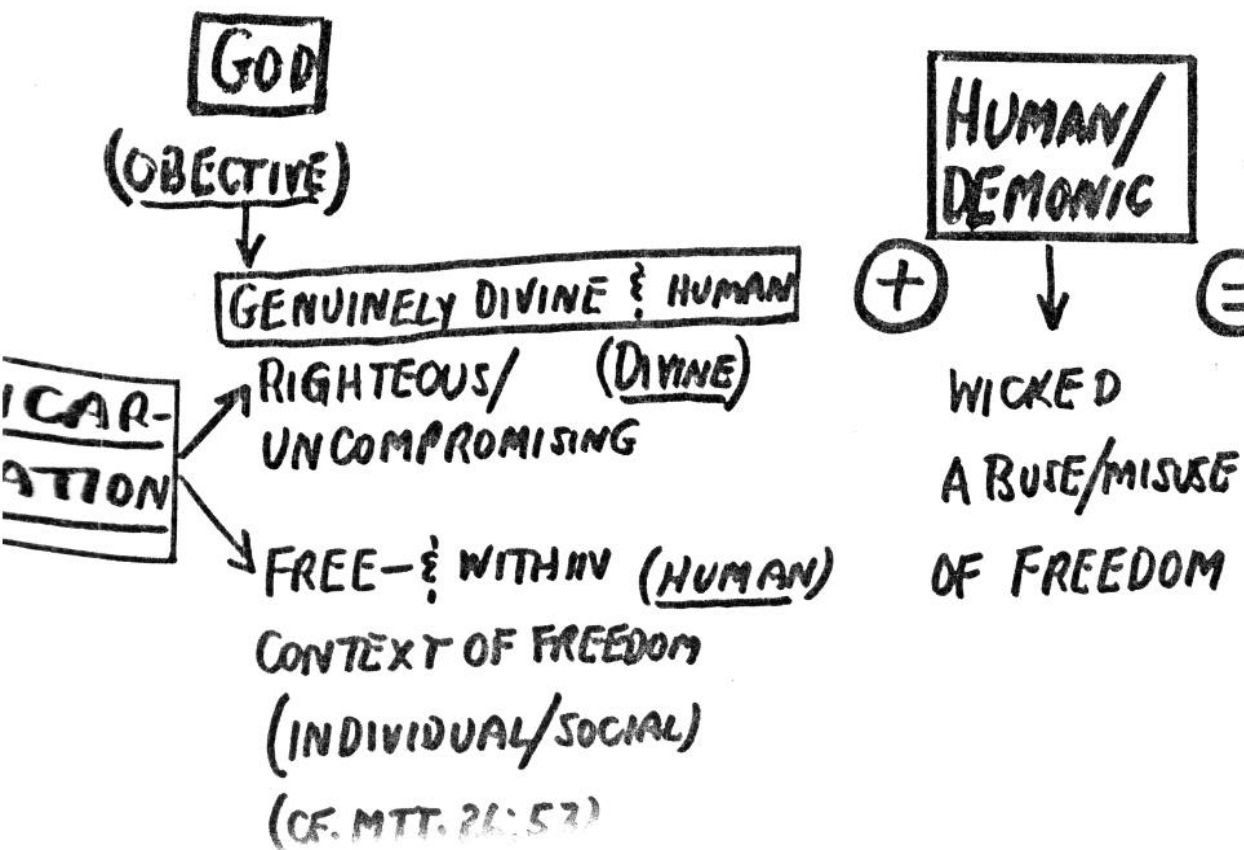 GOD
(OBECTIVE)
GENUINELY DIVINE & HUMAN
ICAR-
ATION
RIGHTEOUS/ (DIVINE)
UNCOMPROMISING
FREE-& WITHIN (HUMAN)
CONTEXT OF FREEDOM
(INDIVIDUAL/SOCIAL)
(CF. MTT. 26:53)
HUMAN/
DEMONIC
+
=
WICKED
ABUSE/MISUSE
OF FREEDOM